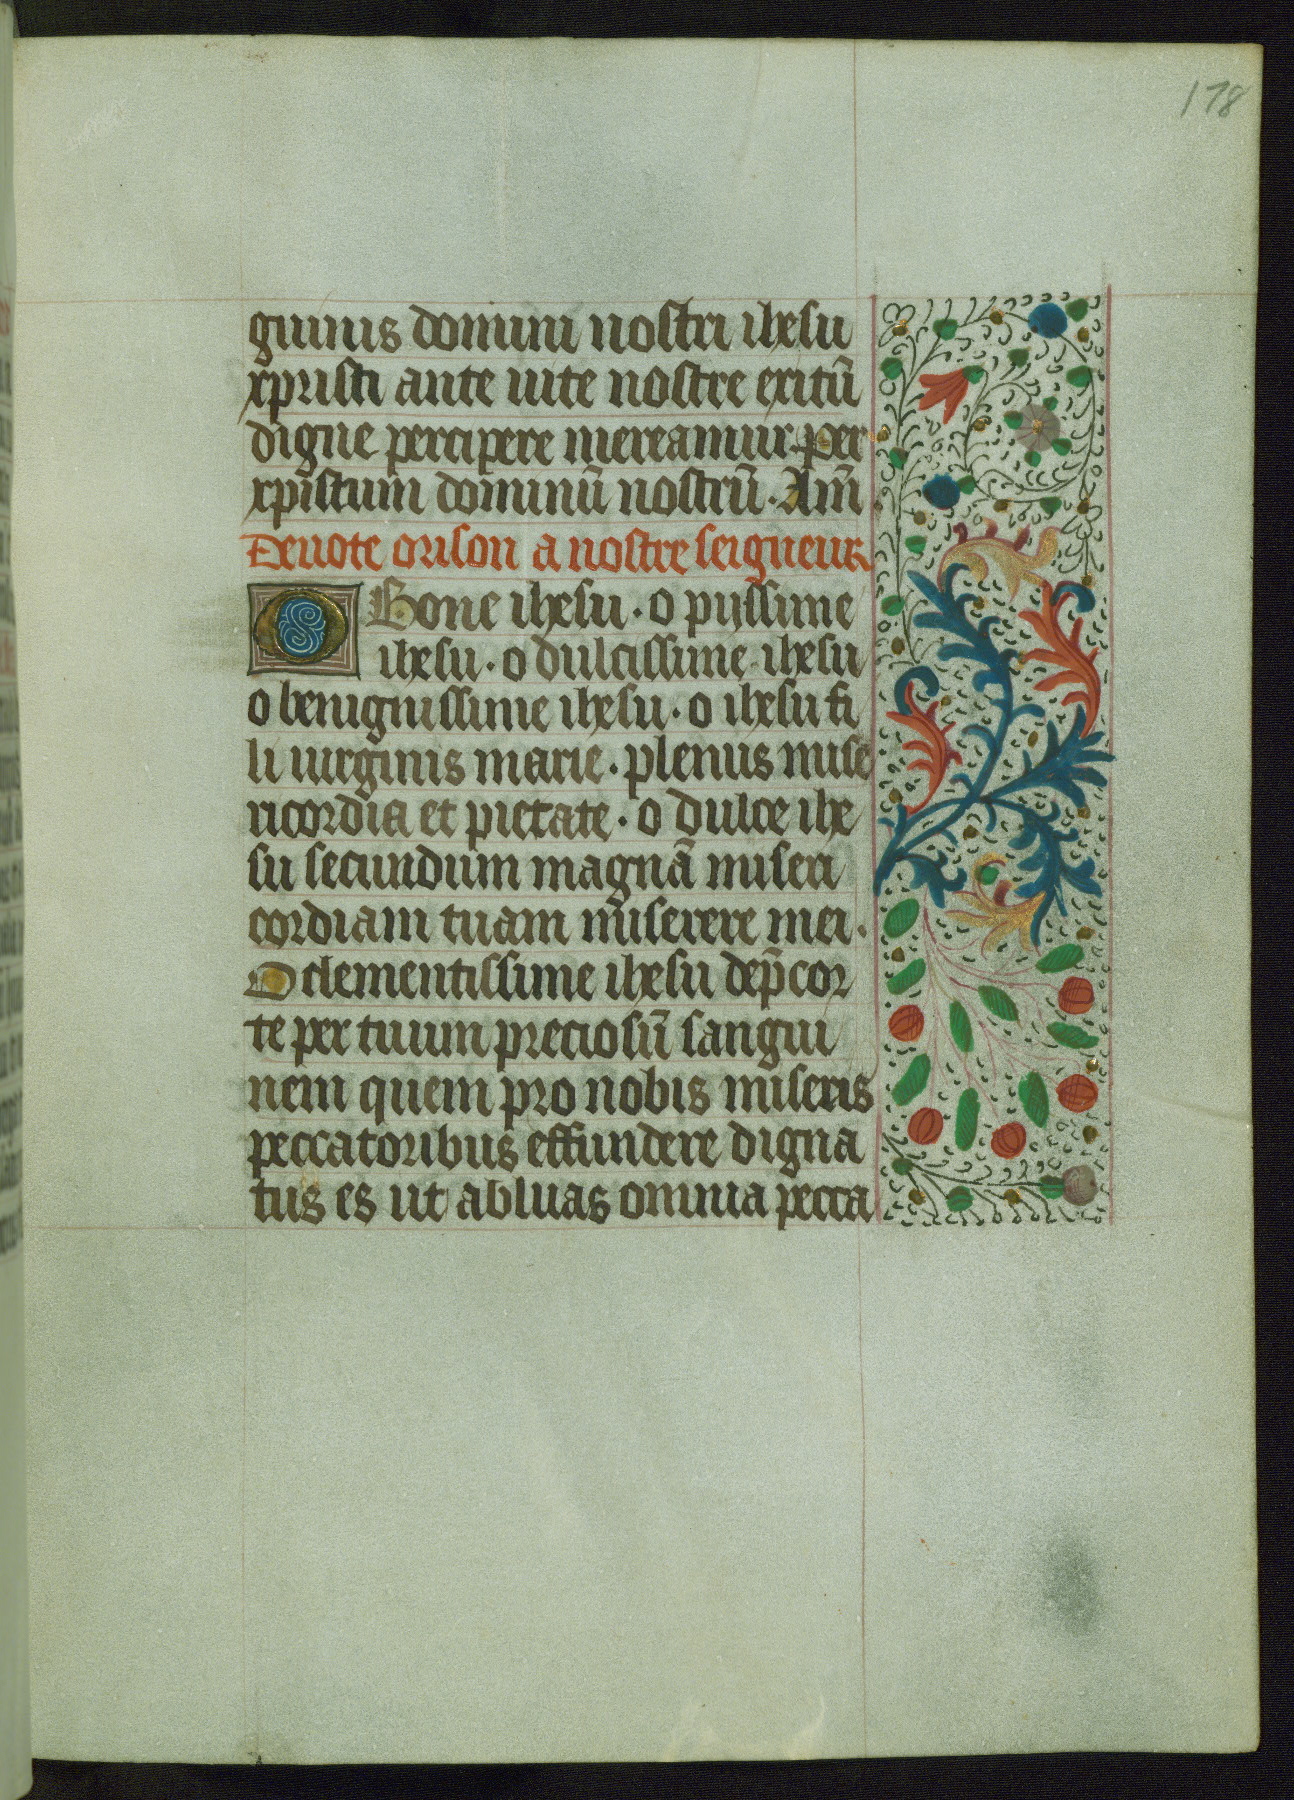 178
guinis domini nostri ihesu
xpristi ante uite nostre exitũ
digne percipere mereamur. per
xpistum dominũ nostrũ. Am̃
Deuote orison a nostre seigneur
O Bone ihesu. o pijssime
ihesu. o dulcissime ihesu
o benignissime ihesu. o ihesu fi
li uirginis marie. plenus mise
ricordia et pietate. o dulce ihe
su secundum magnã miseri
cordiam tuam miserere mei.
O clementissime ihesu dep̃cor
te per tuum preciosũ sangui
nem quem pro nobis miseris
peccatoribus effundere digna
tus es ut abluas omnia pecca